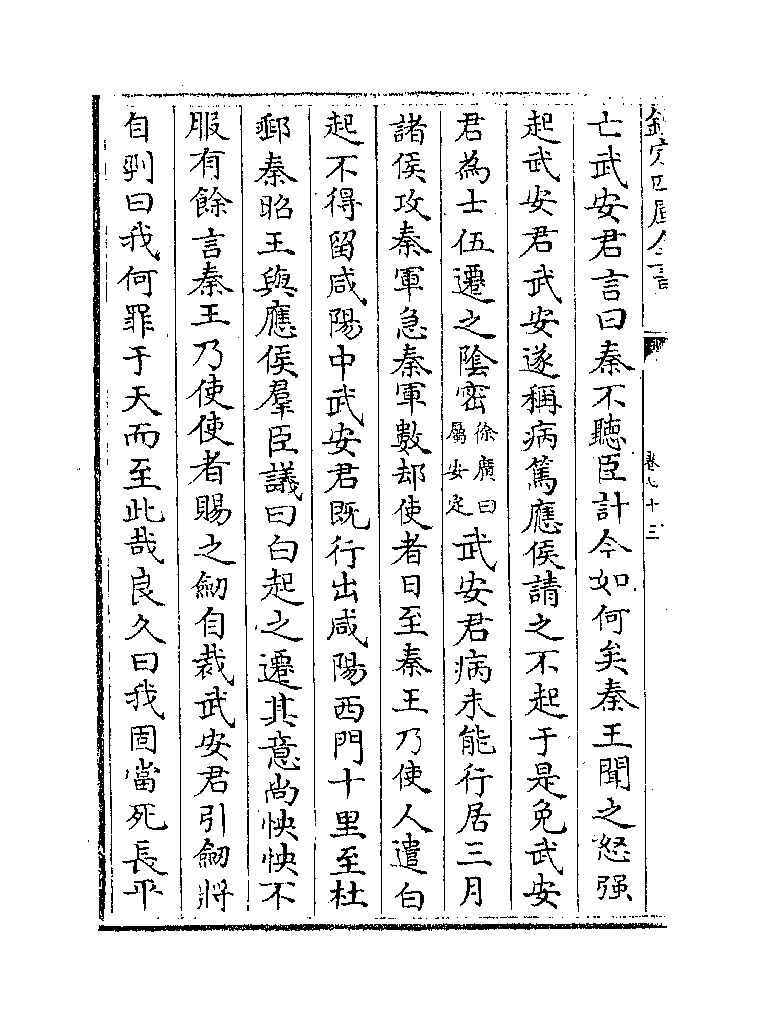 欽定四庫全書
卷七十三
亡武安君言曰秦不聽臣計今如何矣秦王聞之怒强
起武安君武安遂稱病篤應侯請之不起于是免武安
君為士伍遷之陰密徐廣曰屬安定武安君病未能行居三月
諸侯攻秦軍急秦軍數却使者日至秦王乃使人遣白
起不得留咸陽中武安君既行出咸陽西門十里至杜
郵秦昭王與應侯羣臣議曰白起之遷其意尚怏怏不
服有餘言秦王乃使使者賜之劒自裁武安君引劒將
自剄曰我何罪于天而至此哉良久曰我固當死長平